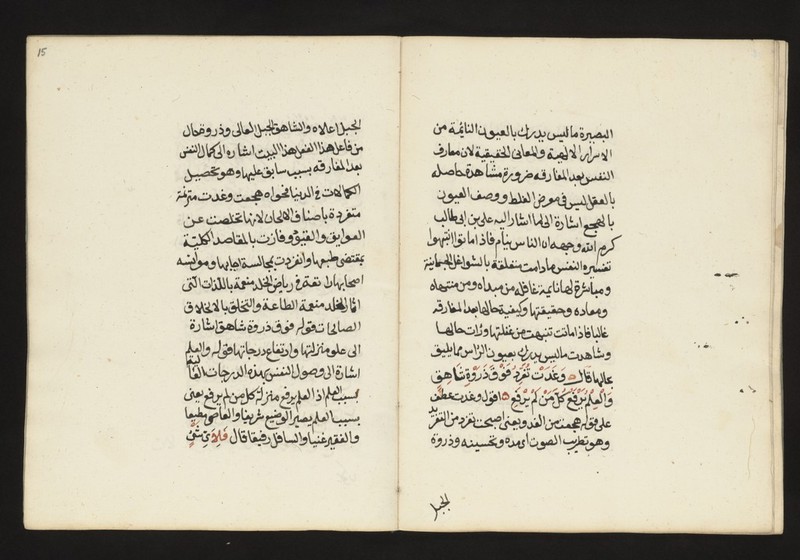 البصيرة ما ليس يدرك بالعيون النائمة من
الاسرار الالهية والمعانى الحقيقية لان معارف
النفس بعد المفارقه ضرورة مشاهدة حاصله
بالعقل ليس فى معرض الغلط ووصف العيون
بالهجع اشارة الى ما اشار اليه على بن ابى طالب
كرم الله وجهه ان الناس نيام فاذا ماتوا انتبهوا
تفسيره النفس ما دامت متعلقة بالشواغل الجسمانية
ومباشرة لها نايمة غافله من مبداه ومن منتهاه
ومعاده وحقيقتها وكيفية حالها بعد المفارقه
غالبا فاذا ماتت تنبهت من غفلتها ورات حالها
وشاهدت ما ليس يدرك بعيون الراس مما يليق
بحالها قال وَغَدَتْ تُغَرِّدُ فَوْقَ ذَرْوَةِ شَاهِقٍ
وَالْعِلْمُ يَرْفَعُ كُلَّ مَنْ لَمْ يُرْفَعِ اقول وغدت عطف
على قوله هجعت من الغد ويعنى اصبحت تغرد من التغريد
وهو تطريب الصوت اى مده وتحسينه وذروة
الجبل
15
الجبل اعلاه والشاهق الجبل العالى وذروة حال
من فاعل هذا الفعل هذا البيت اشاره الى كمال النفس
بعد المفارقه بسبب سابق عليها وهو تحصيل
الكمالات فى الدنيا فحواه هجعت وغدت مترنمة
متغردة باصناف الالحان لانها تخلصت عن
العوايق والقيود وفازت بالمقاصد الكلية
بمقتضى طبعها وانفردت بمجالسة احبابها وموانسة
اصحابها راتعة فى رياض الخلد منعمة باللذات التى
اثار الخلد منعمة الطاعة والتخلق بالاخلاق
الصالحات قوله فوق ذروة شاهق اشارة
الى علو منزلتها وارتفاع درجاتها قوله والعلم
اشارة الى وصول النفس بهذه الدرجات
بحسب العلم اذ العلم يرفع منزلة كل من لم يرفع يعنى
بسبب العلم يصير الوضيع شريفا والعاصى مطيعا
والفقير غنيا والسافل رفيعا قال فَلِأَىِّ شَىْءٍ